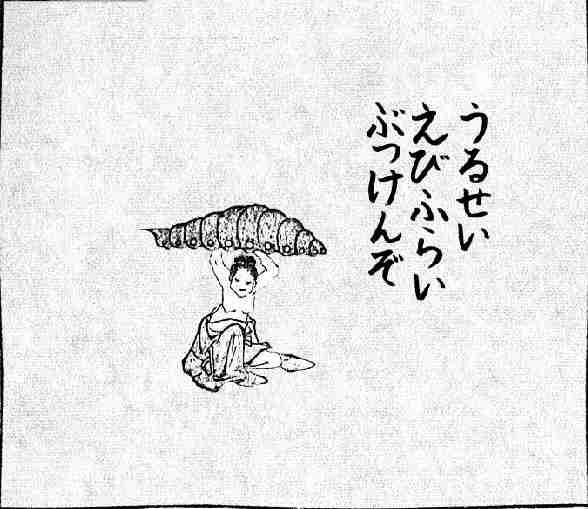 うるせい
えびふらい
ぶっけんぞ